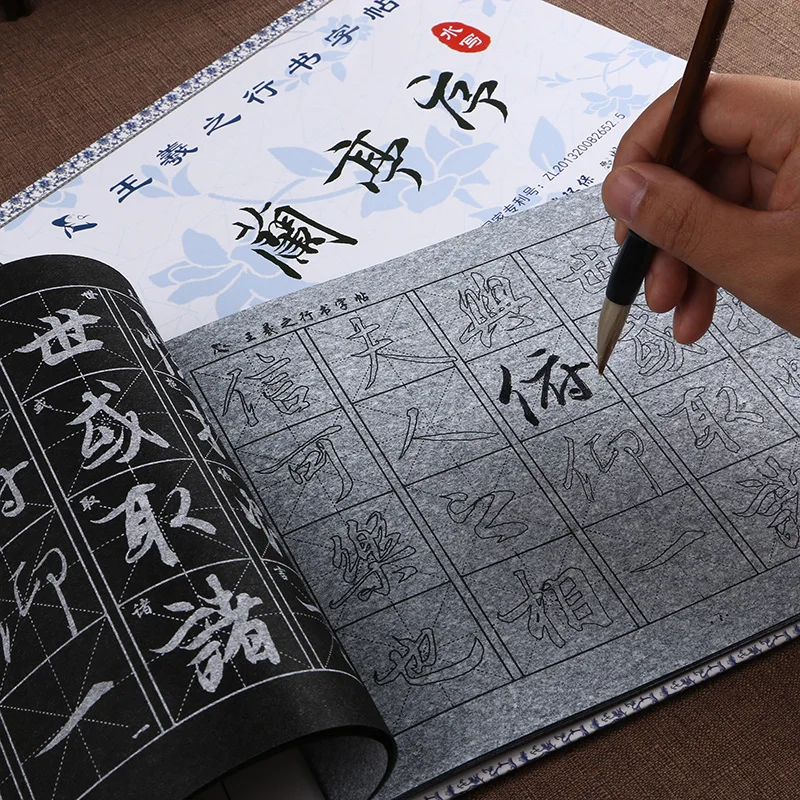 王羲之行书字帖
水写
蘭亭序
专利号：ZL201320082652.5
王羲之行书字帖
信可樂也
夫人之相
與俯仰一
世或取
世或取諸
仰一
世
或
取
諸
一